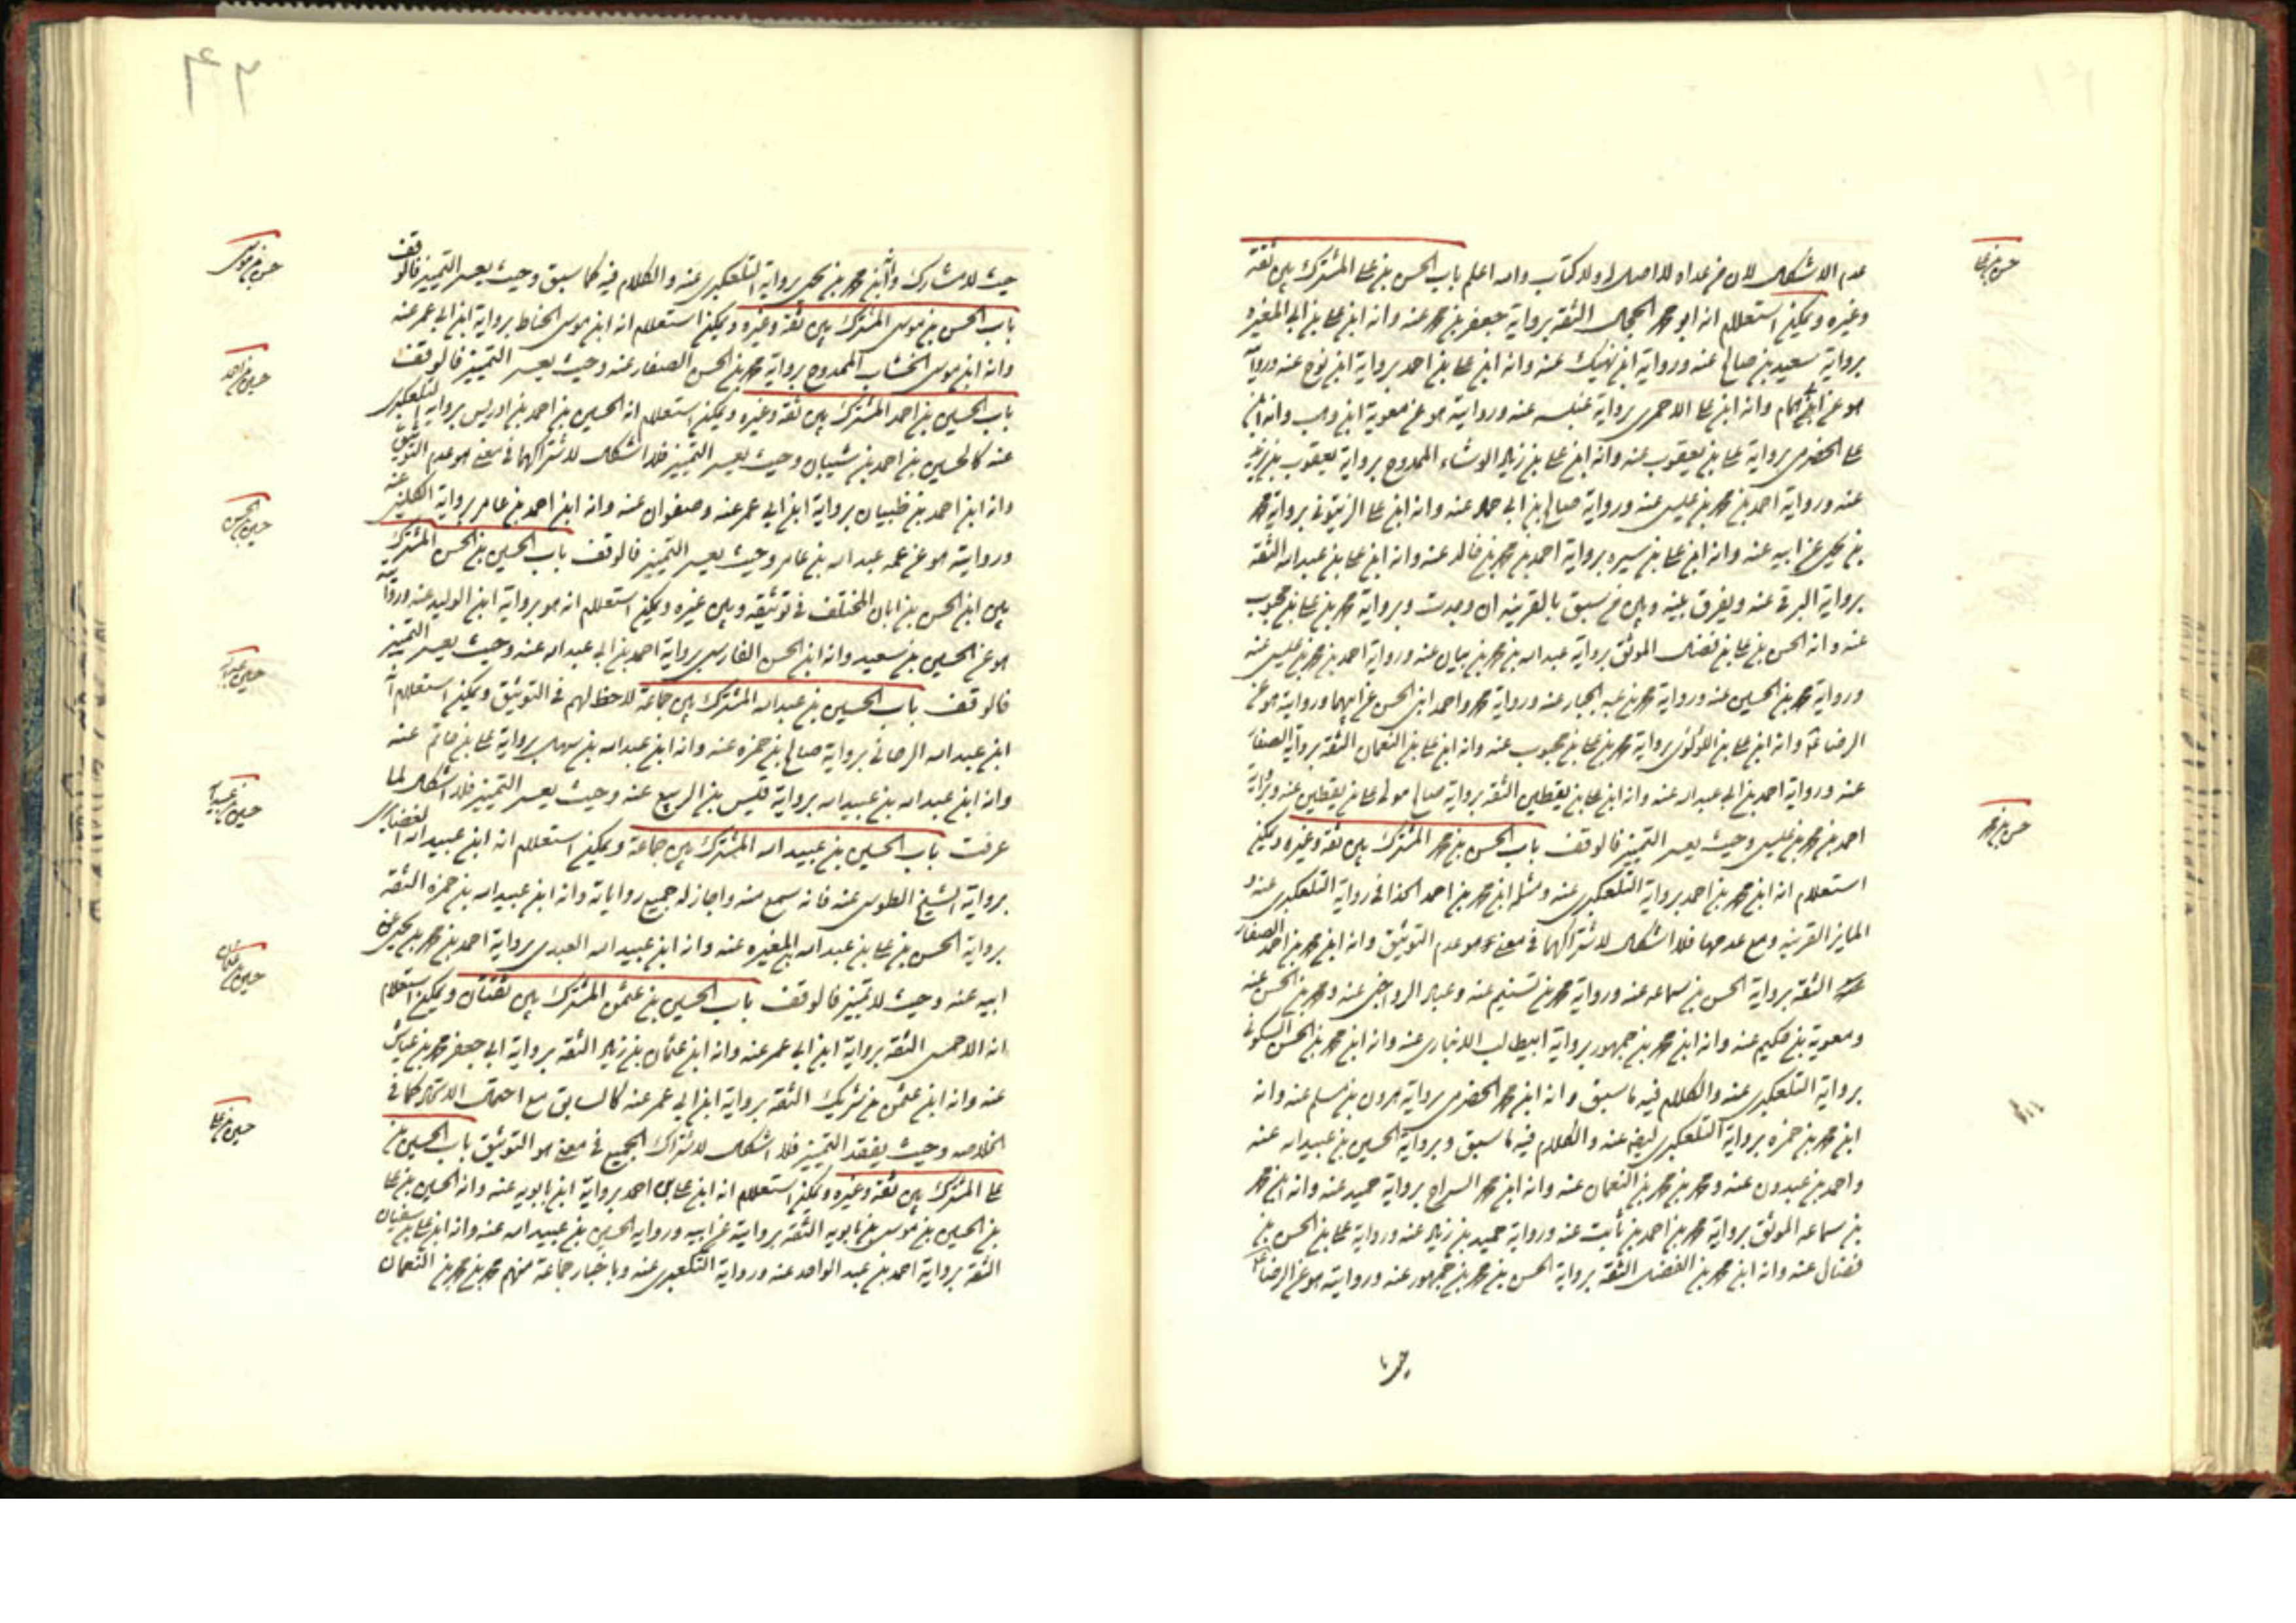 حسن بن علي
عدم الاشكال لان من عداه لا اصل له ولا كتاب والله اعلم باب الحسن بن علي المشترك بين ثقة
وغيره ويمكن استعلام انه ابو محمد الحجال الثقة برواية جعفر بن محمد عنه وانه ابن علي بن ابي المغيره
برواية سعيد بن صالح عنه ورواية ابن نهيك عنه وانه ابن علي بن احمد برواية ابن نوح عنه وروايته
هو عن ابن همام وانه ابن علي الاحمري برواية عنبسه عنه وروايته هو عن معوية ابن وهب وانه ابن
علي الحضرمي برواية علي بن يعقوب عنه وانه ابن علي بن زياد الوشاء الممدوح برواية يعقوب بن يزيد
عنه ورواية احمد بن محمد بن عيسى عنه ورواية صالح بن ابي حماد عنه وانه ابن علي الزيتوني برواية محمد
بن يحيى عن ابيه عنه وانه ابن علي بن سبره برواية احمد بن محمد بن خالد عنه وانه ابن علي بن عبد الله الثقة
برواية البرقي عنه ويفرق بينه وبين من سبق بالقرينه ان وجدت وبرواية محمد بن علي بن محبوب
عنه وانه الحسن بن علي بن فضال الموثق برواية عبد الله بن محمد بن بنان عنه ورواية احمد بن محمد بن عيسى عنه
ورواية محمد بن الحسين عنه ورواية محمد بن عبد الجبار عنه ورواية محمد واحمد ابني الحسن عن ابيهما وروايته هو عن
الرضا ع وانه ابن علي بن اللؤلؤي برواية محمد بن علي بن محبوب عنه وانه ابن علي بن النعمان الثقة برواية الصفار
عنه ورواية احمد بن ابي عبد الله عنه وانه ابن علي بن يقطين الثقة برواية صالح مولى علي بن يقطين عنه وبرواية
حسن بن محمد
احمد بن محمد بن عيسى وحيث يعسر التميز فالوقف باب الحسن بن محمد المشترك بين ثقة وغيره ويمكن
استعلام انه ابن محمد بن احمد برواية التلعكبري عنه ومثله ابن محمد بن احمد الحذا في رواية التلعكبري عنه و
المايز القرينه ومع عدمها فلا اشكال لاشتراكهما في معنى هو عدم التوثيق وانه ابن محمد بن احمد الصفار
الثقة برواية الحسن بن سماعه عنه ورواية محمد بن تسنيم عنه وعباد الرواجني عنه ومحمد بن الحسن عنه
ومعوية بن حكيم عنه وانه ابن محمد بن جمهور برواية ابيطالب الانباري عنه وانه ابن محمد بن الحسن السكوني
برواية التلعكبري عنه والكلام فيه ما سبق وانه ابن محمد الحضرمي برواية هرون بن مسلم عنه وانه
ابن محمد بن حمزه برواية التلعكبري ايضا عنه والكلام فيه ما سبق وبرواية الحسين بن عبيد الله عنه
واحمد بن عبدون عنه ومحمد بن محمد بن النعمان عنه وانه ابن محمد السراج برواية حميد عنه وانه ابن محمد
بن سماعه الموثق برواية محمد بن احمد بن ثابت عنه ورواية حميد بن زياد عنه ورواية علي بن الحسن بن
فضال عنه وانه ابن محمد بن الفضل الثقة برواية الحسن بن محمد بن جمهور عنه وروايته هو عن الرضا ع
٤٢
حسن بن موسى
حيث لا مشارك وانه ابن محمد بن يحيى برواية التلعكبري عنه والكلام فيه كما سبق وحيث يعسر التميز فالوقف
باب الحسن بن موسى المشترك بين ثقة وغيره ويمكن استعلام انه ابن موسى الحناط برواية ابن ابي عمير عنه
وانه ابن موسى الخشاب الممدوح برواية محمد بن الحسن الصفار عنه وحيث يعسر التميز فالوقف
حسين بن احمد
باب الحسين بن احمد المشترك بين ثقة وغيره ويمكن استعلام انه الحسين بن احمد بن ادريس برواية التلعكبري
عنه كالحسين بن احمد بن شيبان وحيث يعسر التميز فلا اشكال لاشتراكهما في معنى هو عدم التوثيق
وانه ابن احمد بن ظبيان برواية ابن ابي عمير عنه وصفوان عنه وانه ابن احمد بن عامر برواية الكليني عنه
حسين بن الحسن
وروايته هو عن عمه عبد الله بن عامر وحيث يعسر التميز فالوقف باب الحسين بن الحسن المشترك
بين ابن الحسن بن ابان المختلف في توثيقه وبين غيره ويمكن استعلام انه هو برواية ابن الوليد عنه وروايته
هو عن الحسين بن سعيد وانه ابن الحسن الفارسي برواية احمد بن ابي عبد الله عنه وحيث يعسر التميز
حسين بن عبد الله
فالوقف باب الحسين بن عبد الله المشترك بين جماعة لاحظ لهم في التوثيق ويمكن استعلام انه
ابن عبد الله الرجاني برواية صالح بن حمزه عنه وانه ابن عبد الله بن سهل برواية علي بن حاتم عنه
وانه ابن عبد الله بن عبيد الله برواية قيس بن الربيع عنه وحيث يعسر التميز فلا اشكال لما
حسين بن عبيد الله
عرفت باب الحسين بن عبيد الله المشترك بين جماعة ويمكن استعلام انه ابن عبيد الله الغضايري
برواية الشيخ الطوسي عنه فانه سمع منه واجاز له جميع رواياته وانه ابن عبيد الله بن حمزه الثقة
برواية الحسن بن علي بن عبد الله المغيره عنه وانه ابن عبيد الله العبدي برواية احمد بن محمد بن يحيى عن
حسين بن عثمان
ابيه عنه وحيث لا تميز فالوقف باب الحسين بن عثمن المشترك بين ثقتان ويمكن استعلام
انه الاحمسي الثقة برواية ابن ابي عمير عنه وانه ابن عثمان بن زياد الثقة برواية ابي جعفر محمد بن عياش
عنه وانه ابن عثمن بن شريك الثقة برواية ابن ابي عمير عنه كالسابق مع احتمال الاتحاد كما في
حسين بن علي
الخلاصه وحيث يفقد التميز فلا اشكال لاشتراك الجميع في معنى هو التوثيق باب الحسين بن
علي المشترك بين ثقة وغيره ويمكن استعلام انه ابن علي بن احمد برواية ابن بابويه عنه وانه الحسين بن علي
بن الحسين بن موسى بن بابويه الثقة بروايته عن ابيه ورواية الحسين بن عبيد الله عنه وانه ابن علي بن سفيان
الثقة برواية احمد بن عبد الواحد عنه ورواية التلعكبري عنه وباخبار جماعة منهم محمد بن محمد بن النعمان